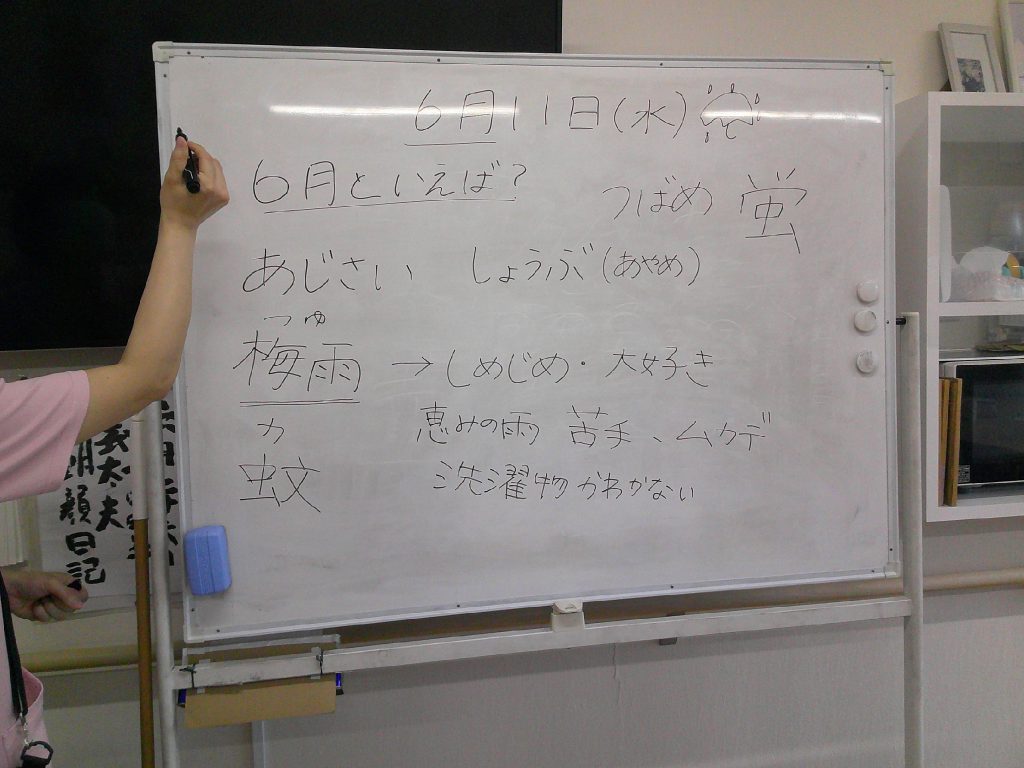 6月11日(水)
6月といえば?
つばめ 蛍
あじさい しょうぶ(あやめ)
つゆ
梅雨 → しめじめ・大好き
カ 恵みの雨 苦手、ムカデ
蚊 洗濯物かわかない
義太夫
顔日記